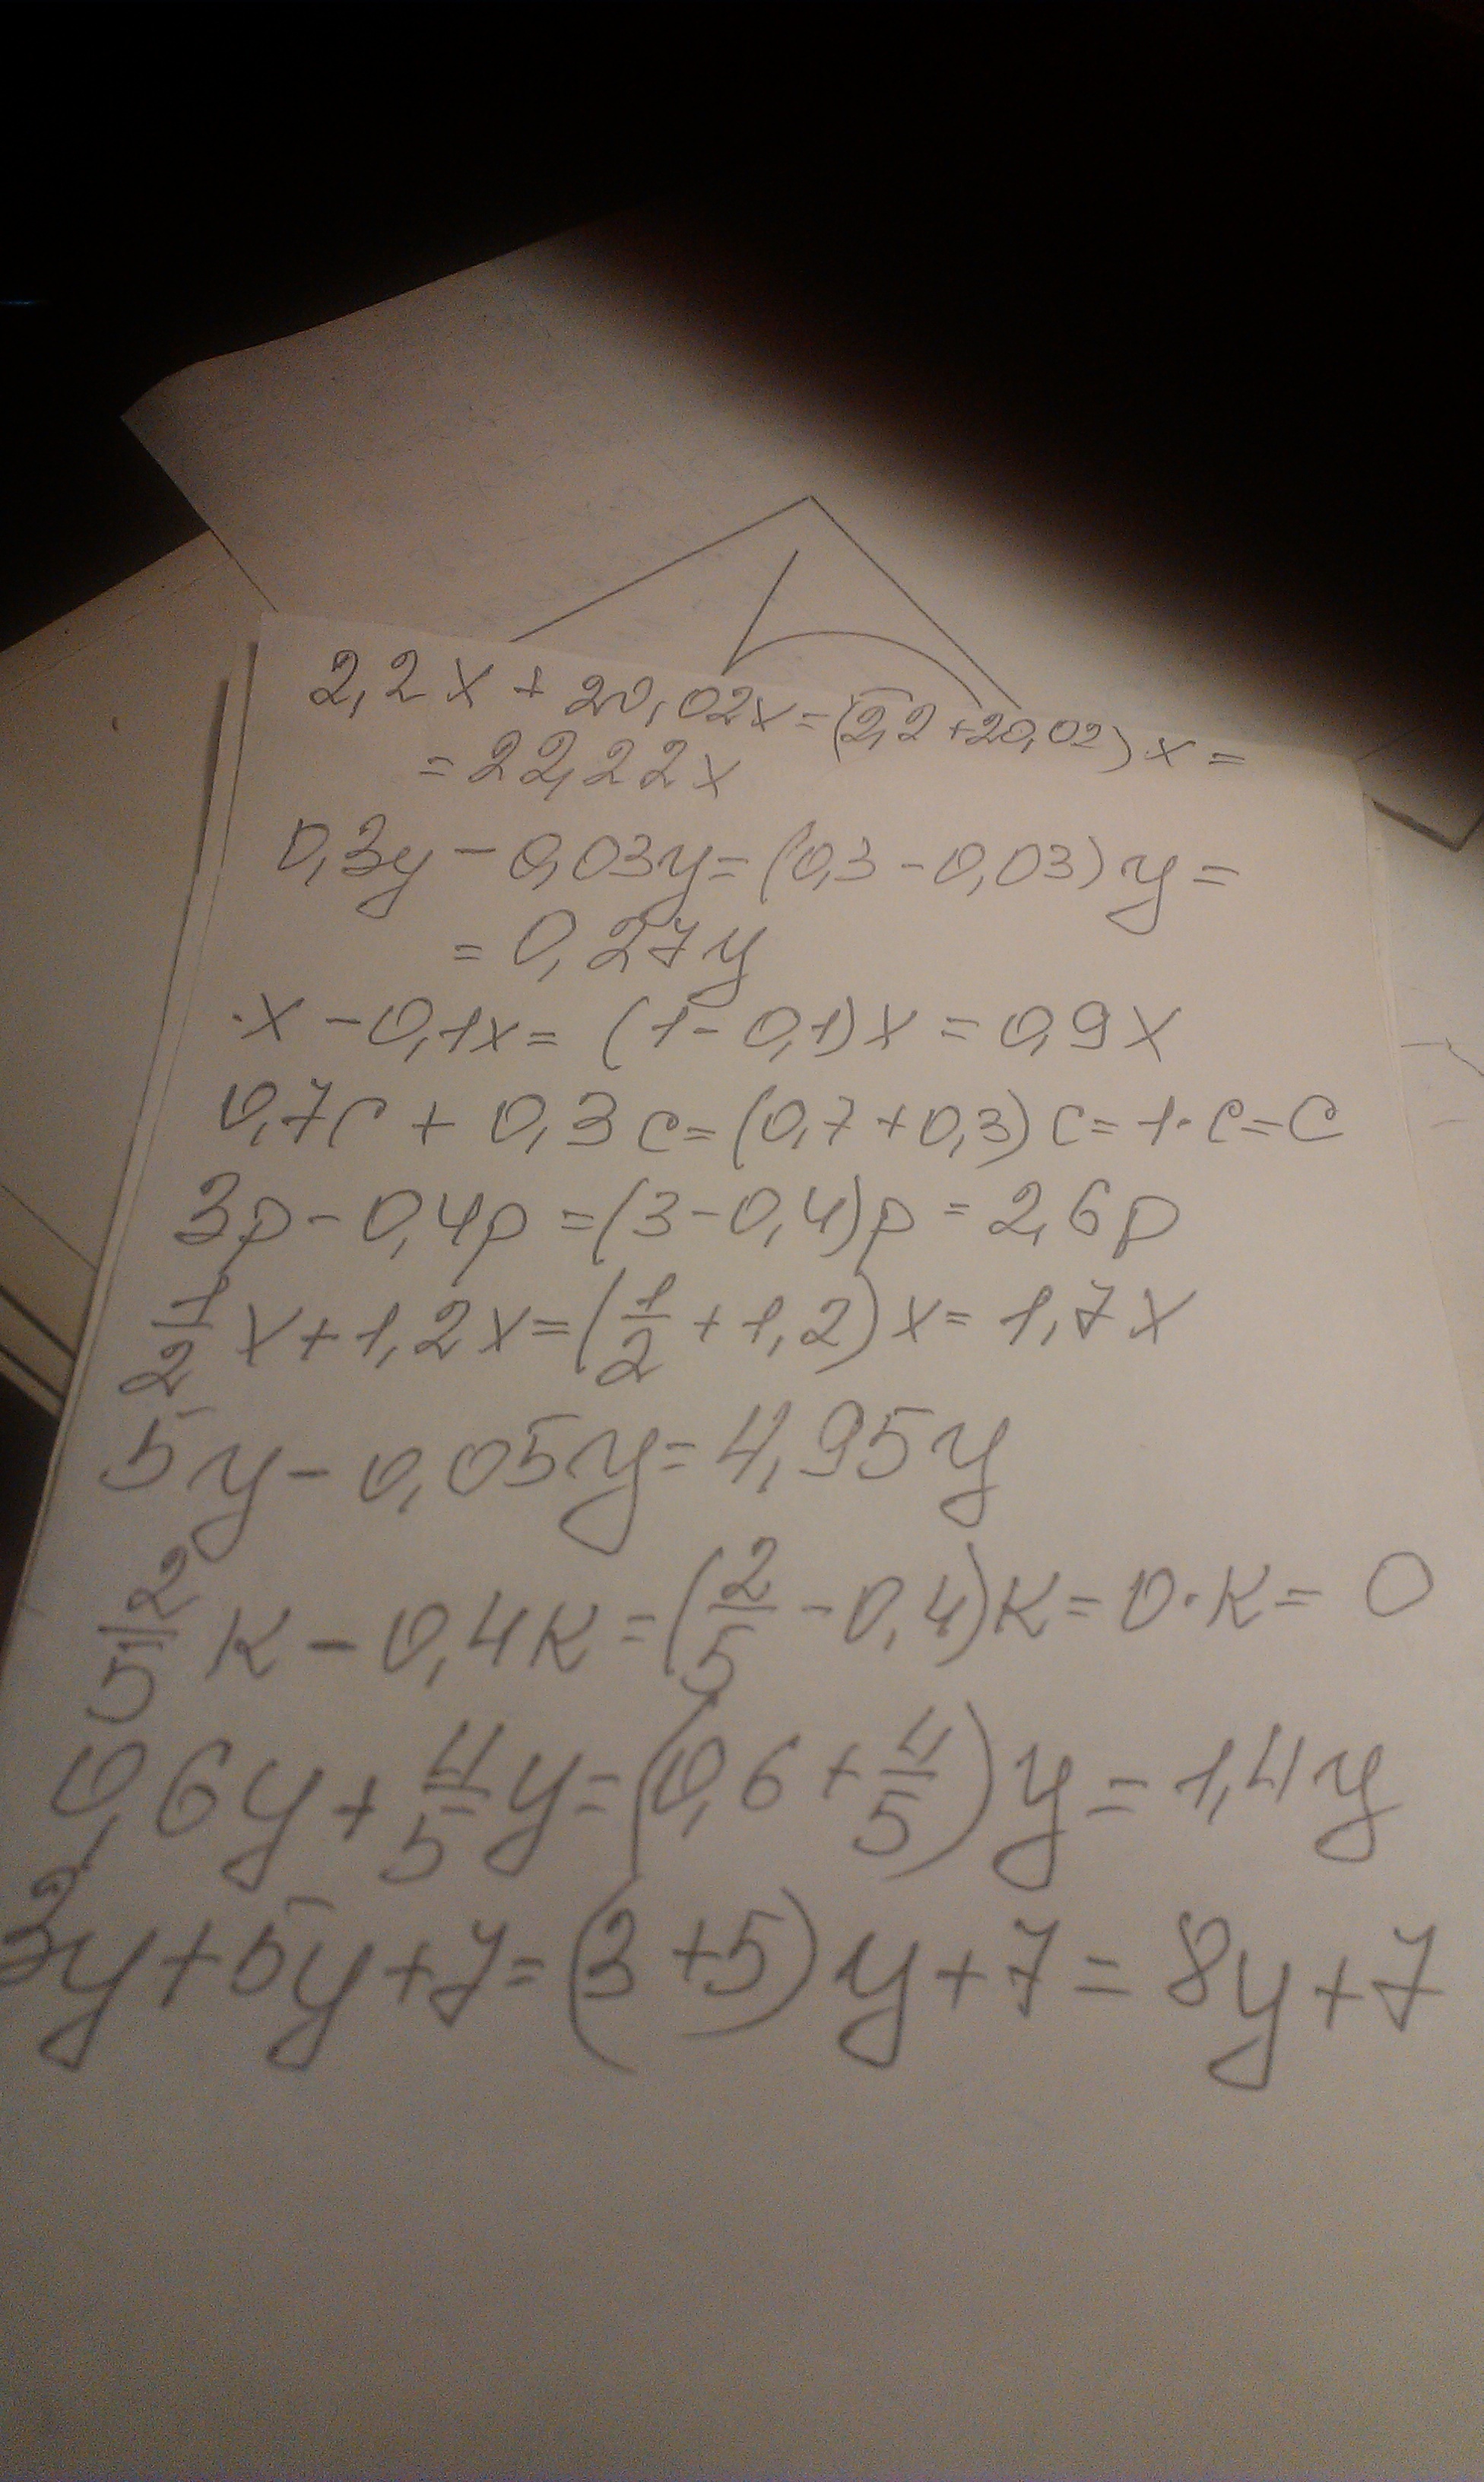 2,2x + 20,02x = (2,2 + 20,02) x =
= 22,22x
0,3y - 0,03y = (0,3 - 0,03) y =
= 0,27y
x - 0,1x = (1 - 0,1)x = 0,9x
0,7c + 0,3c = (0,7 + 0,3) c = 1·c = c
3p - 0,4p = (3 - 0,4)p = 2,6p
1/2 x + 1,2x = (1/2 + 1,2) x = 1,7x
5y - 0,05y = 4,95y
2/5 к - 0,4к = (2/5 - 0,4)к = 0·к = 0
0,6y + 4/5 y = (0,6 + 4/5) y = 1,4y
3y + 5y + 7 = (3 + 5) y + 7 = 8y + 7